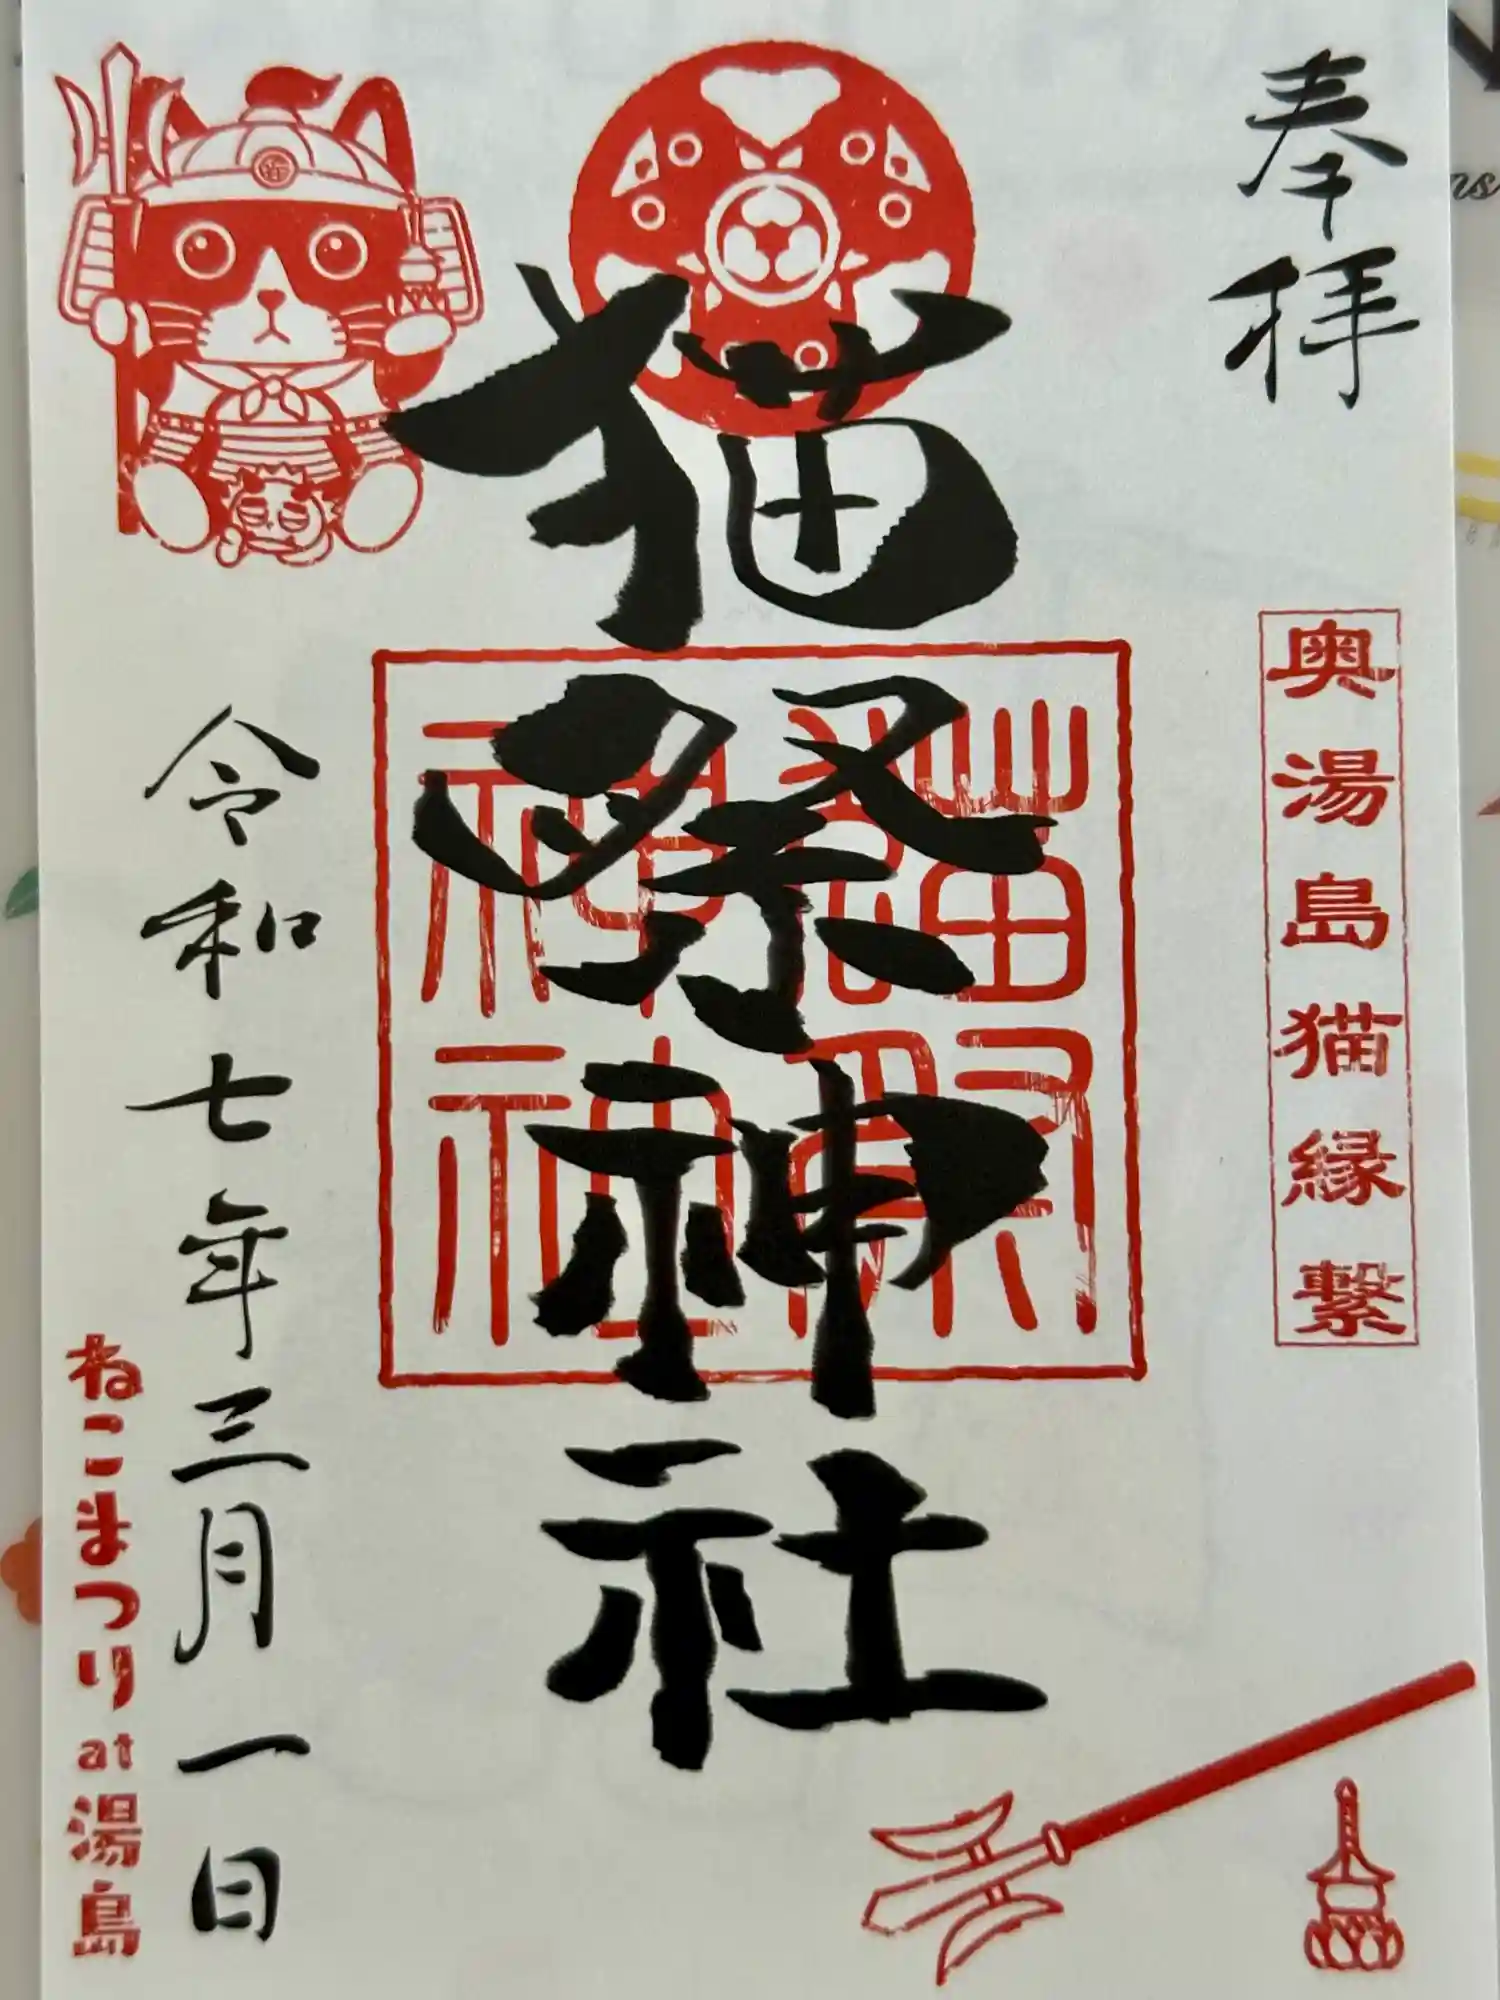 奉拝
奥湯島猫縁繋
猫祭神社
猫祭神社
令和七年三月一日
ねこまつりat湯島